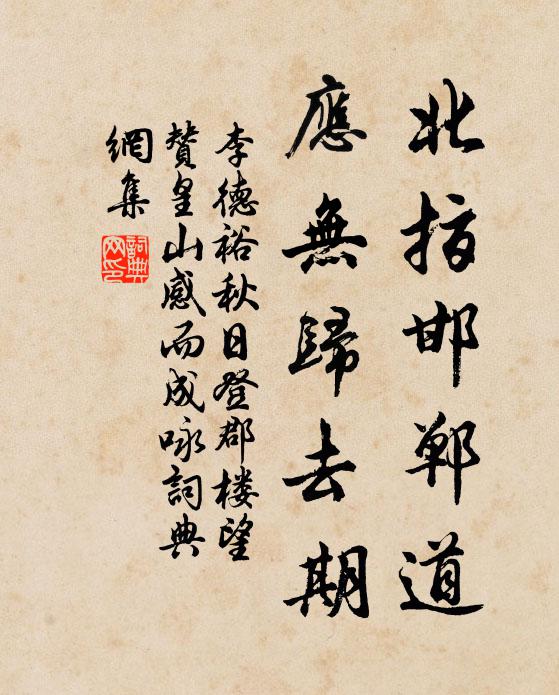 北指邯鄲道
應無歸去期
李德裕秋日登郡楼望
贊皇山感而成咏詞典
網集
詞典
网印